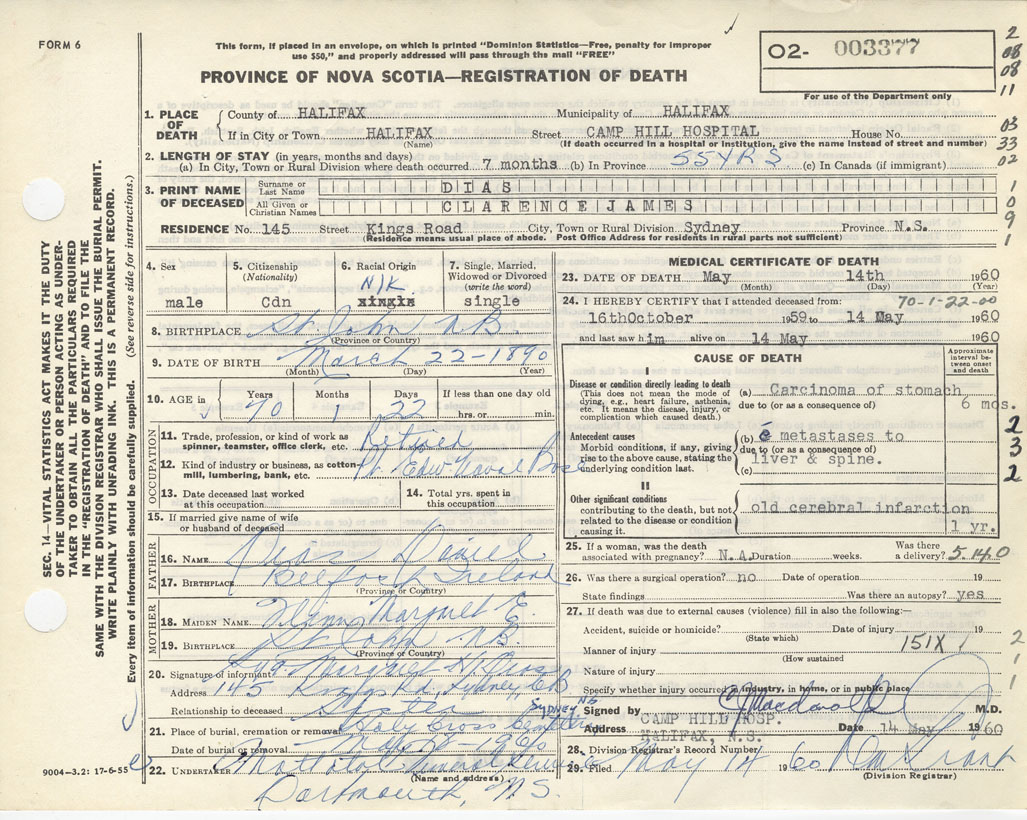 FORM 6
This form, if placed in an envelope, on which is printed "Dominion Statistics—Free, penalty for improper
use $50," and properly addressed will pass through the mail "FREE"
PROVINCE OF NOVA SCOTIA—REGISTRATION OF DEATH
02- 003377
For use of the Department only
2
08
08
11
03
33
02
1
0
9
1
1. PLACE OF DEATH
County of HALIFAX Municipality of HALIFAX
If in City or Town HALIFAX Street CAMP HILL HOSPITAL House No.
(Name) (If death occurred in a hospital or institution, give the name instead of street and number)
2. LENGTH OF STAY (in years, months and days)
(a) In City, Town or Rural Division where death occurred 7 months (b) In Province 55YRS (c) In Canada (if immigrant)
3. PRINT NAME OF DECEASED
Surname or Last Name DIAS
All Given or Christian Names CLARENCE JAMES
RESIDENCE No. 145 Street Kings Road City, Town or Rural Division Sydney Province N.S.
(Residence means usual place of abode. Post Office Address for residents in rural parts not sufficient)
4. Sex
male
5. Citizenship
(Nationality)
Cdn
6. Racial Origin
N/K
single
7. Single, Married,
Widowed or Divorced
(write the word)
single
8. BIRTHPLACE St. John N.B.
(Province or Country)
9. DATE OF BIRTH March 22-1890
(Month) (Day) (Year)
10. AGE in
Years Months Days If less than one day old
70 1 22 hrs. min.
OCCUPATION
11. Trade, profession, or kind of work as
spinner, teamster, office clerk, etc. Retired
12. Kind of industry or business, as cotton
mill, lumbering, bank, etc. Pt. Edw. Naval Base
13. Date deceased last worked
at this occupation
14. Total yrs. spent in
this occupation
15. If married give name of wife
or husband of deceased
FATHER
16. NAME Dias Daniel
17. BIRTHPLACE Belfast Ireland
(Province or Country)
MOTHER
18. MAIDEN NAME Margaret E
19. BIRTHPLACE St John N.B.
(Province or Country)
20. Signature of informant
Address 145 Kings Rd, Sydney CB
Relationship to deceased Sister
21. Place of burial, cremation or removal Holy Cross Cemetery Sydney NS
Date of burial or removal 1960
22. UNDERTAKER Funeral Service
(Name and address)
Dartmouth, N.S.
MEDICAL CERTIFICATE OF DEATH
23. DATE OF DEATH May 14th 1960
(Month) (Day) (Year)
24. I HEREBY CERTIFY that I attended deceased from: 70-1-22-00
16thOctober 1959 to 14 May 1960
and last saw him alive on 14 May 1960
CAUSE OF DEATH
Approximate
interval be-
tween onset
and death
I
Disease or condition directly leading to death
(This does not mean the mode of
dying, e.g., heart failure, asthenia,
etc. It means the disease, injury, or
complication which caused death.)
(a) Carcinoma of stomach
due to (or as a consequence of)
6 mos.
Antecedent causes
Morbid conditions, if any, giving
rise to the above cause, stating the
underlying condition last.
(b) c metastases to
due to (or as a consequence of)
liver & spine.
(c)
2
3
2
II
Other significant conditions
contributing to the death, but not
related to the disease or condition
causing it.
old cerebral infarction
1 yr.
25. If a woman, was the death Was there
associated with pregnancy? N.A. Duration weeks. a delivery? 5.14.0
26. Was there a surgical operation? no Date of operation 19
State findings Was there an autopsy? yes
27. If death was due to external causes (violence) fill in also the following:—
Accident, suicide or homicide? Date of injury 19
(State which)
Manner of injury 151X 1
(How sustained
Nature of injury
Specify whether injury occurred in industry, in home, or in public place
2
1
1
Signed by Macdonald M.D.
Address CAMP HILL HOSP. HALIFAX, N.S. Date 14 May 1960
28. Division Registrar's Record Number
29. Filed May 14 1960 Grant
(Division Registrar)
SEC. 14—VITAL STATISTICS ACT MAKES IT THE DUTY
OF THE UNDERTAKER OR PERSON ACTING AS UNDER-
TAKER TO OBTAIN ALL THE PARTICULARS REQUIRED
IN THE "REGISTRATION OF DEATH" AND TO FILE THE
SAME WITH THE DIVISION REGISTRAR WHO SHALL ISSUE THE BURIAL PERMIT.
WRITE PLAINLY WITH UNFADING INK. THIS IS A PERMANENT RECORD.
Every item of information should be carefully supplied. (See reverse side for instructions.)
9004-3.2: 17-6-55